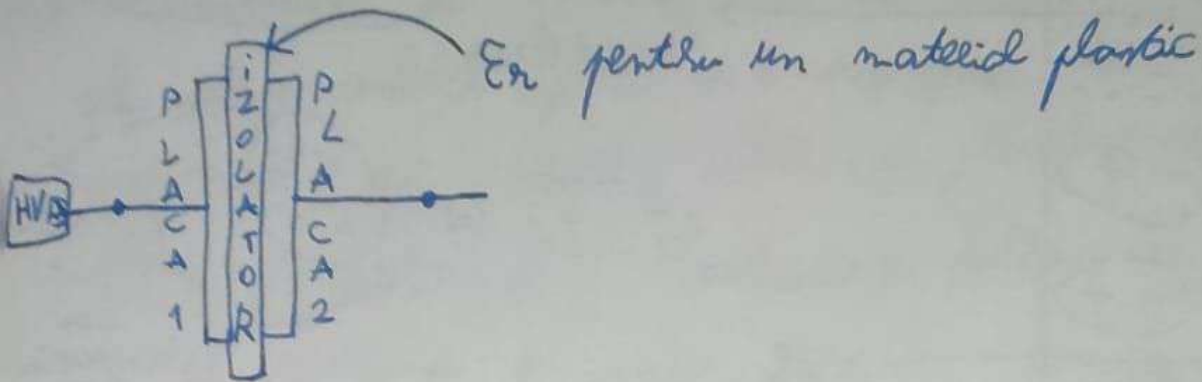 Er pentru un material plastic
PLACA 1
IZOLATOR
PLACA 2
HV